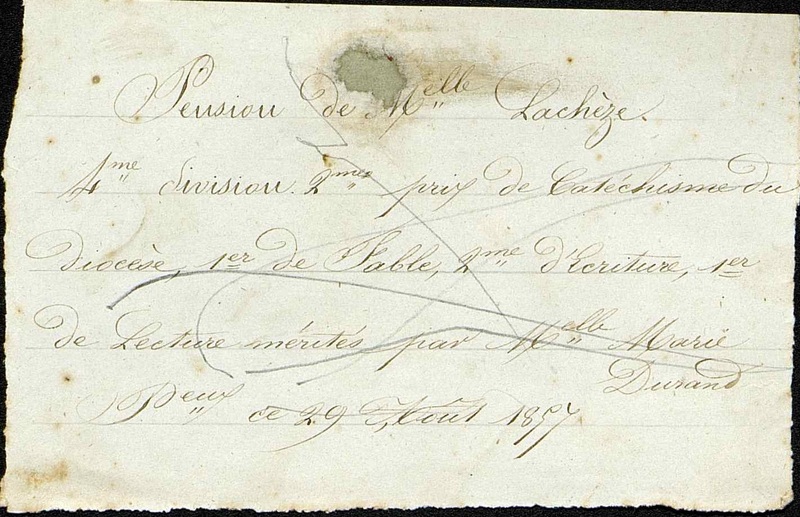 Pension de Melle Lachèze.
4me division. 2mes prix de Catéchisme du
diocèse, 1er de Fable, 2me d'Ecriture, 1er
de Lecture mérités par Melle Marie
Durand
Peux ce 29 Août 1857